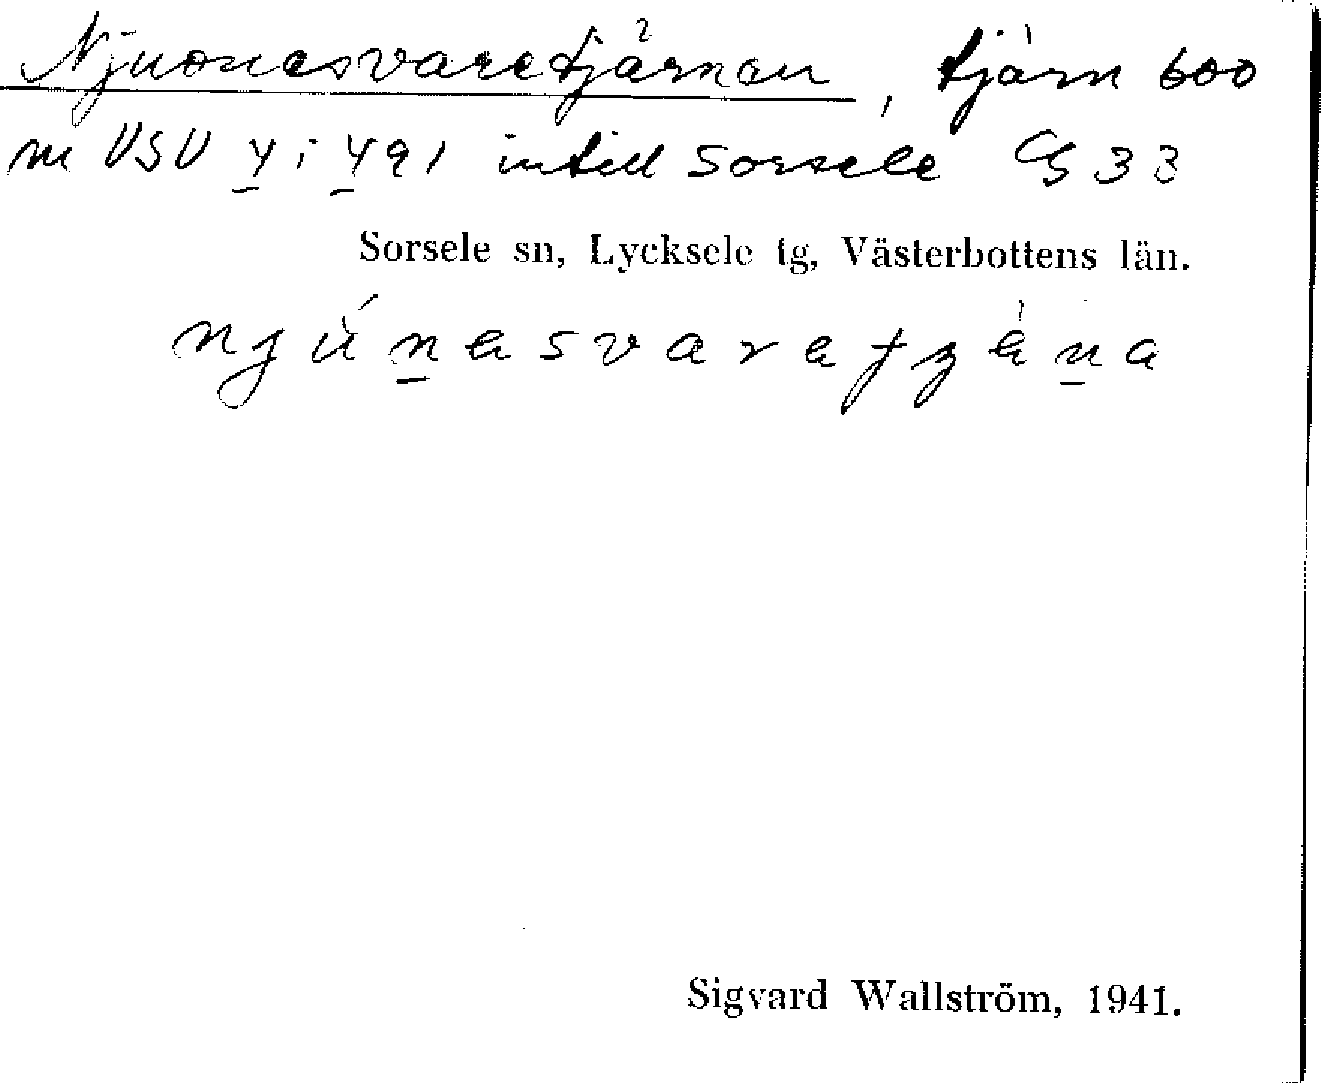 Njuonesvaretjärnan, tjärn 600
m VSV 4 i 491 intill Sorsele G 33
Sorsele sn, Lycksele tg, Västerbottens län.
Sigvard Wallström, 1941.